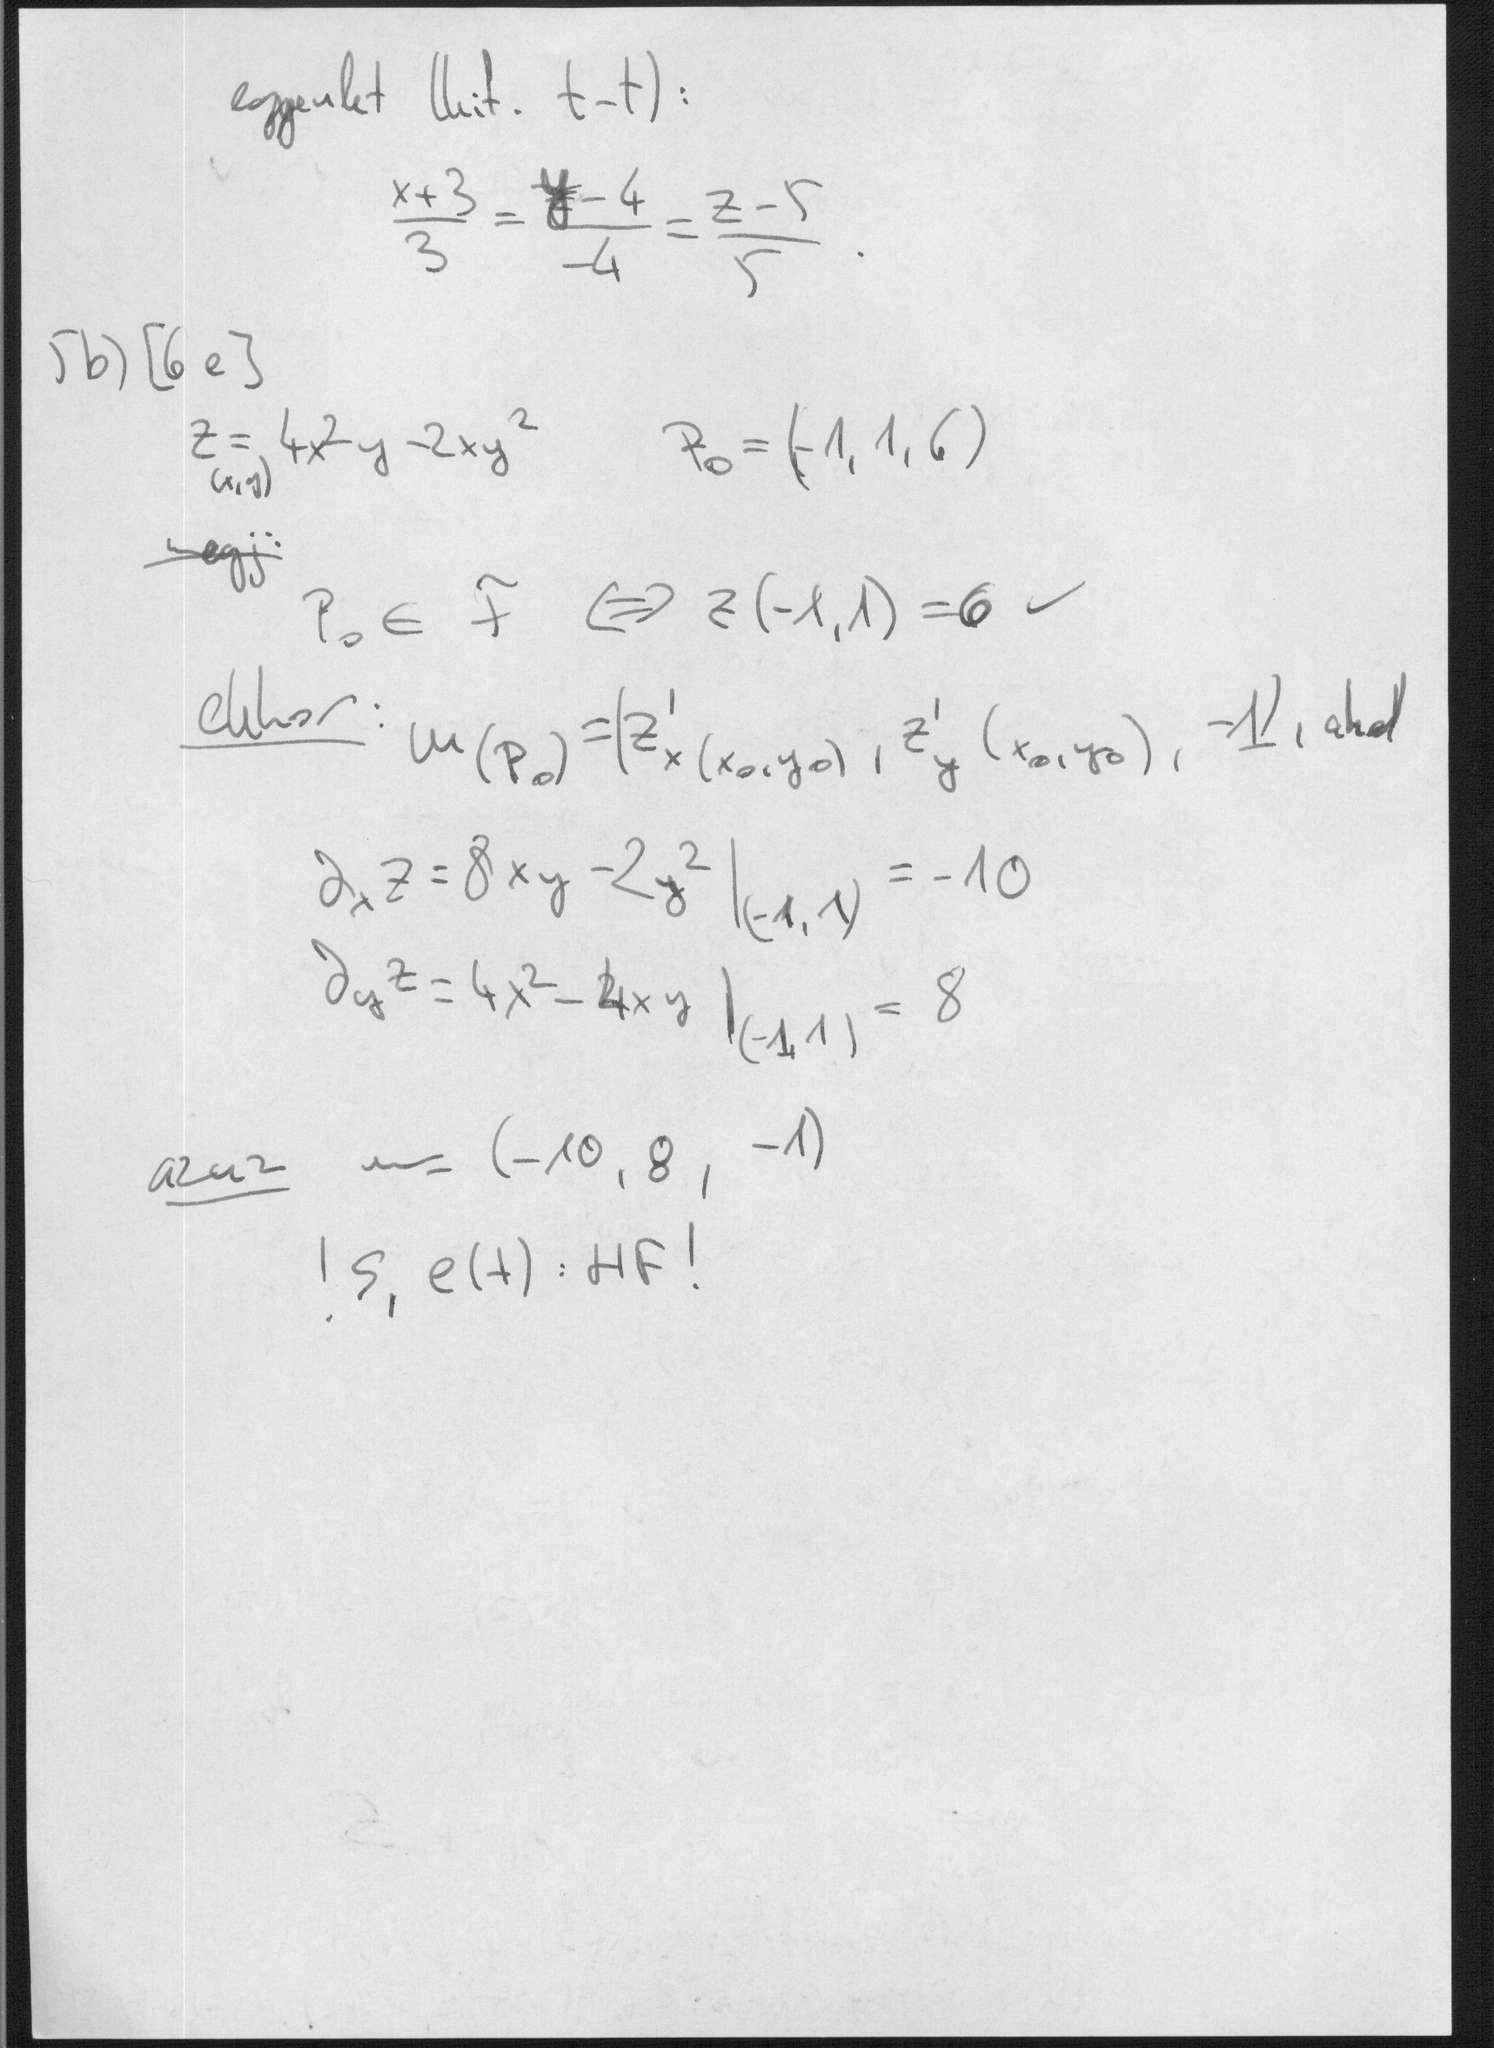 egyenlet (kit. t-t):
x+3/3 = y-4/-4 = z-5/5 .
5b) [6 e]
z(x,y) = 4x²y - 2xy² P₀ = (-1, 1, 6)
megj:
P₀ ∈ F̃ ⇔ z(-1,1) = 6 ✓
ekkor: n(P₀) = (z'x(x₀,y₀), z'y(x₀,y₀), -1), ahol
∂xz = 8xy - 2y² |(-1,1) = -10
∂yz = 4x² - 4xy |(-1,1) = 8
azaz n = (-10, 8, -1)
! S, e(t) : HF !